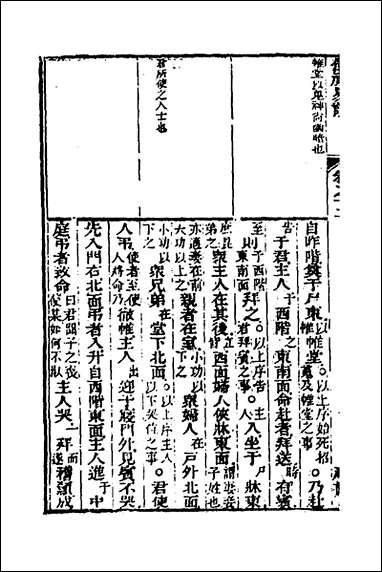 帷堂以鬼神尚幽暗也
君所使之人士也
自阼階奠于尸東帷堂○以上序始死招魂及帷堂之事○乃赴
告于君主人于西階之東南面命赴者拜送時有賓
至則于西階東南面拜之○以上序告君拜賓之事○主人入坐于尸牀東
庶昆弟之眾主人在其後皆西面婦人俠牀東面謂妻妾子姓也
亦適妻在前大功以上之親者在室小功以下之眾婦人在戶外北面
小功以下之眾兄弟在堂下北面○以上序主人以下哭位之事○君使
人弔使者至使人辭命乃徹帷主人出迎于寢門外見賓不哭
先入門右北面弔者入升自西階東面主人進于中
庭弔者致命曰君聞子之喪使某如何不淑主人哭而拜遂稽顙成